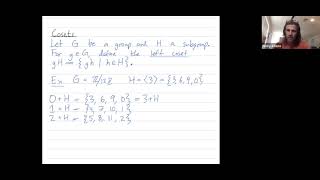 Cosets
Let G be a group and H a subgroup.
For g∈G, define the left coset
gH = {gh | h∈H}.
Ex. G = Z/12Z H = <3> = {3,6,9,0}
0+H = {3, 6, 9, 0} = 3+H
1+H = {4, 7, 10, 1}
2+H = {5, 8, 11, 2}